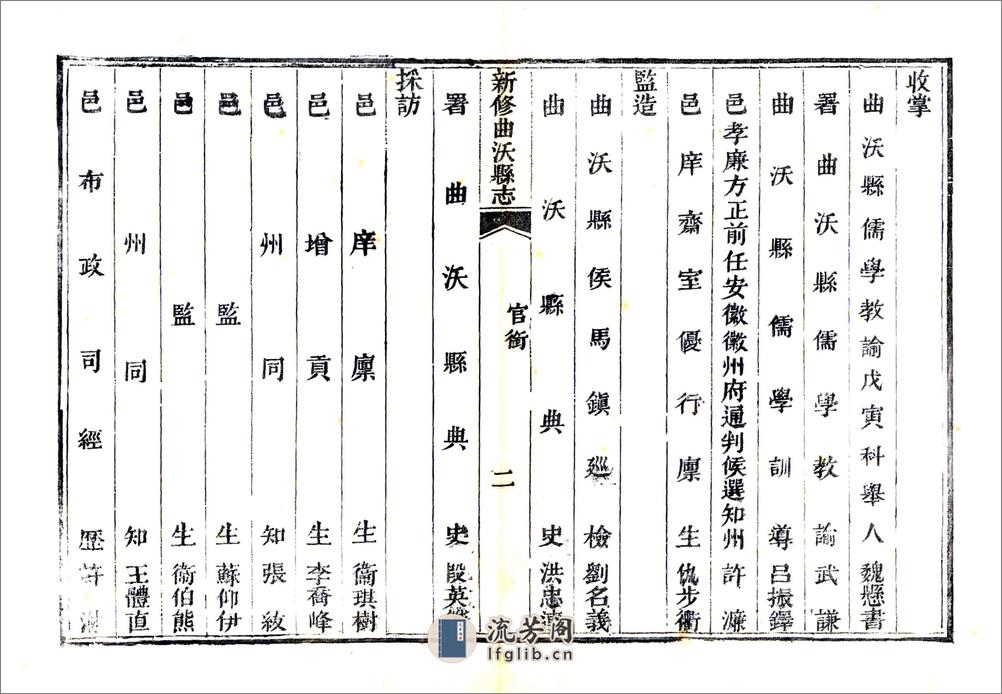 收掌
曲沃縣儒學教諭戊寅科舉人魏懸書
署曲沃縣儒學教諭武謙
曲沃縣儒學訓導呂振鐸
邑孝廉方正前任安徽徽州府通判候選知州許濂
邑庠齋室優行廩生仇步衢
監造
曲沃縣侯馬鎮巡檢劉名義
曲沃縣典史洪忠
新修曲沃縣志
官銜
二
署曲沃縣典史段英
採訪
邑庠廩生衞琪樹
邑增貢生李喬峰
邑州同知張紱
邑監生蘇仰伊
邑監生衞伯熊
邑州同知王體直
邑布政司經歷許
流芳閣
lfglib.cn